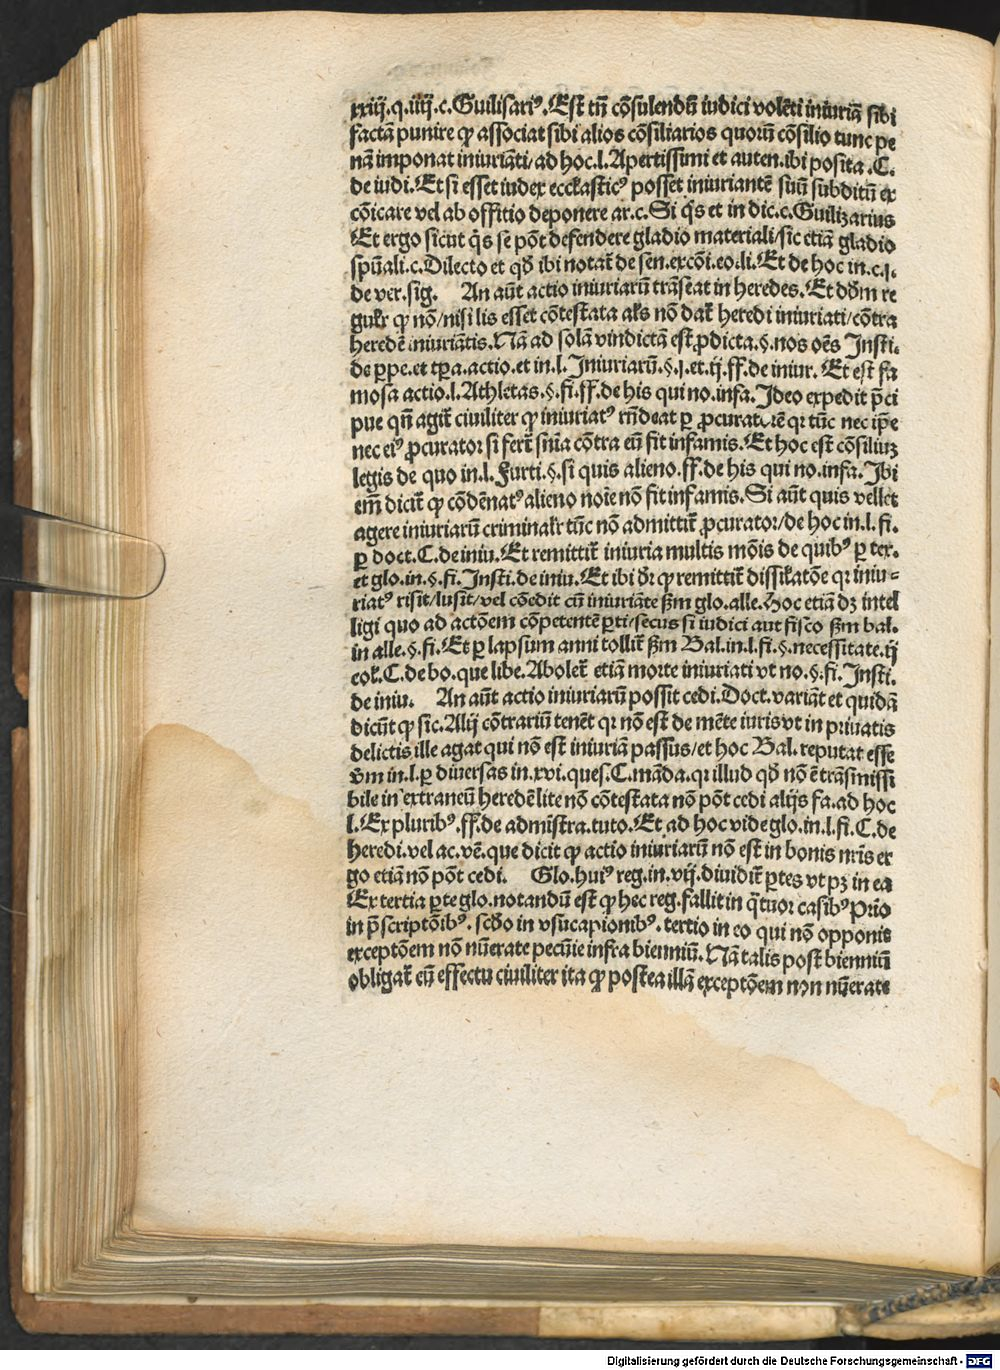 xxiij.q.iiij.c.Guilisariꝰ.Est tñ cōsulendū iudici volēti iniuriā sibi
factā punire ꝙ associat sibi alios cōsiliarios quorū cōsilio tunc pe
nā imponat iniuriāti/ad hoc.l.Apertissimi et auten.ibi posita.C.
de iudi.Et si esset iudex eccłasticꝰ posset iniuriantē suū subditū ex
cōicare vel ab offitio deponere ar.c.Si q̇s et in dic.c.Guilizarius
Et ergo sicut q̇s se pōt defendere gladio materiali/sic etiā gladio
spūali.c.Dilecto et qð ibi notat̄ de sen.excōi.eo.li.Et de hoc in.c.j.
de ver.sig. An aūt actio iniuriarū trāseat in heredes.Et dðm re
gulr̄ ꝙ nō/nisi lis esset cōtestata als̄ nō dat̄ heredi iniuriati/cōtra
heredē iniuriātis.Nā ad solā vindictā est ꝓdicta.§.nos oēs Insti.
de ꝑpe.et tp̄a.actio.et in.l.Iniuriarū.§.j.et.ij.ff.de iniur. Et est fa
mosa actio.l.Athletas.§.fi.ff.de his qui no.infa.Ideo expedit p̄ci
pue qn̄ agit̄ ciuiliter ꝙ iniuriatꝰ rn̄deat ꝑ ꝓcuratorē qꝛ tūc nec ip̄e
nec eiꝰ ꝓcurator si fert̄ sn̄ia cōtra eū fit infamis.Et hoc est cōsiliuꝫ
legis de quo in.l.Furti.§.si quis alieno.ff.de his qui no.infa.Ibi
em̄ dicit̄ ꝙ cōdēnatꝰ alieno noīe nō fit infamis.Si aūt quis vellet
agere iniuriarū criminalr̄ tūc nō admittit̄ ꝓcurator/de hoc in.l.fi.
ꝑ doct.C.de iniu.Et remittit̄ iniuria multis mōis de quibꝰ ꝑ tex.
et glo.in.§.fi.Insti.de iniu.Et ibi dr̄ ꝙ remittit̄ dissilatōe qꝛ iniu-
riatꝰ risit/lusit/vel cōedit cū iniuriāte ẜm glo.alle.Hoc etiā dꝫ intel
ligi quo ad actōem cōpetentē ꝑti/secus si iudici aut fisco ẜm bal.
in alle.§.fi.Et ꝑ lapsum anni tollit̄ ẜm Bal.in.l.fi.§.necessitate.ij
col̄.C.de bo.que libe.Abolet̄ etiā morte iniuriati vt no.§.fi.Insti.
de iniu. An aūt actio iniuriarū possit cedi.Doct.variāt et quidā
dicūt ꝙ sic.Alij cōtrariū tenēt qꝛ nō est de mēte iuris vt in priuatis
delictis ille agat qui nō est iniuriā passus/et hoc Bal.reputat esse
v̄m in.l.ꝑ diuersas in.xvi.ques.C.māda.qꝛ illud qð nō ē trāsmissi
bile in extraneū heredē lite nō cōtestata nō pōt cedi alijs fa.ad hoc
l.Ex pluribꝰ.ff.de admīstra.tuto.Et ad hoc vide glo.in.l.fi.C.de
heredi.vel ac.vē.que dicit ꝙ actio iniuriarū nō est in bonis nr̄is er
go etiā nō pōt cedi. Glo.huiꝰ reg.in.vij.diuidit̄ ꝑtes vt pꝫ in ea
Ex tertia ꝑte glo.notandū est ꝙ hec reg.fallit in q̄tuor casibꝰ Prīo
in p̄scriptōibꝰ.scðo in vsucapionibꝰ.tertio in eo qui nō opponit
exceptōem nō nūerate pecūie infra bienniū.Nā talis post bienniū
obligat̄ cū effectu ciuiliter ita ꝙ postea illā exceptōem non nūerate
Digitalisierung gefördert durch die Deutsche Forschungsgemeinschaft - DFG